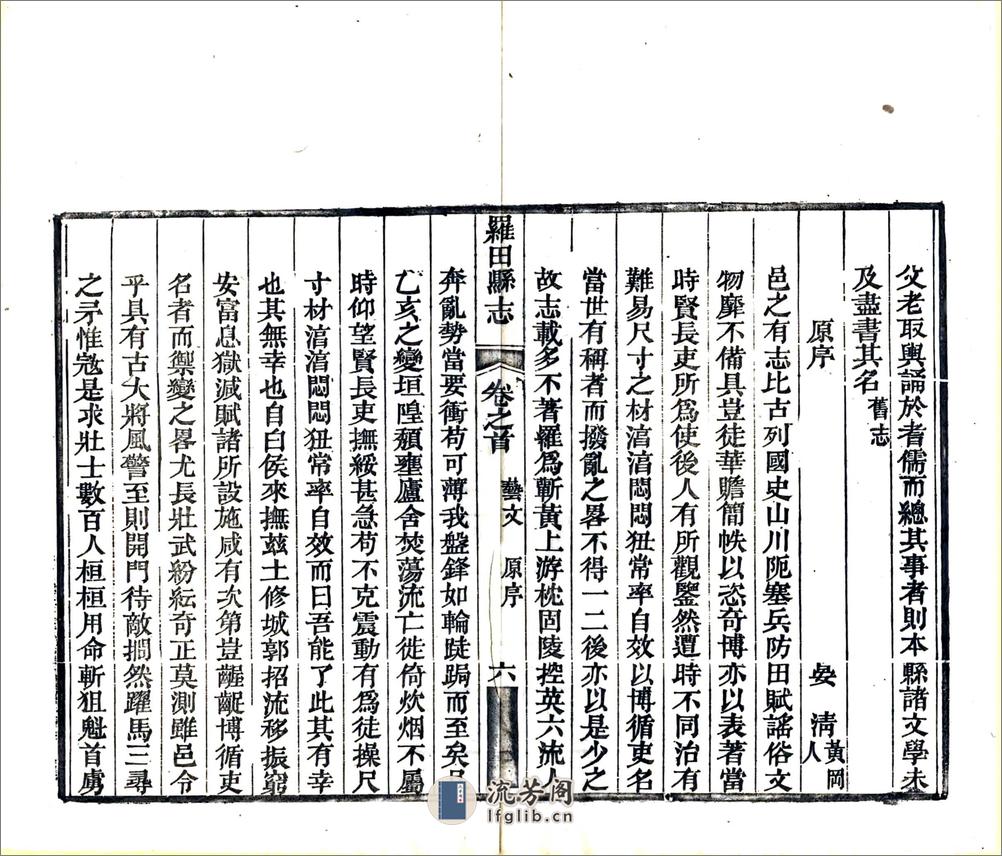 父老取輿誦於耆儒而總其事者則本縣諸文學未
及盡書其名舊志
原序 晏淸黃岡人
邑之有志比古列國史山川阨塞兵防田賦謠俗文
物靡不備具豈徒華贍簡帙以恣奇博亦以表著當
時賢長吏所爲使後人有所觀鑒然遭時不同治有
難易尺寸之材湻湻悶悶狃常率自效以博循吏名
當世有稱者而撥亂之畧不得一二後亦以是少之
故志載多不著羅爲蘄黃上游枕固陵控英六流人
羅田縣志 卷之首 藝文 原序 六
奔亂勢當要衝苟可薄我盤鋒如輪陡跼而至矣
乙亥之變垣隍頹壅廬舍焚蕩流亡徙倚炊烟不屬
時仰望賢長吏撫綏甚急苟不克震動有爲徒操尺
寸材湻湻悶悶狃常率自效而曰吾能了此其有幸
也其無幸也自白侯來撫茲土修城郭招流移振窮
安富息獄減賦諸所設施咸有次第豈齷齪博循吏
名者而禦變之畧尤長壯武紛紜奇正莫測雖邑令
乎具有古大將風警至則開門待敵撊然躍馬三尋
之矛惟寇是求壯士數百人桓桓用命斬狙魁首虜
流芳阁
lfglib.cn